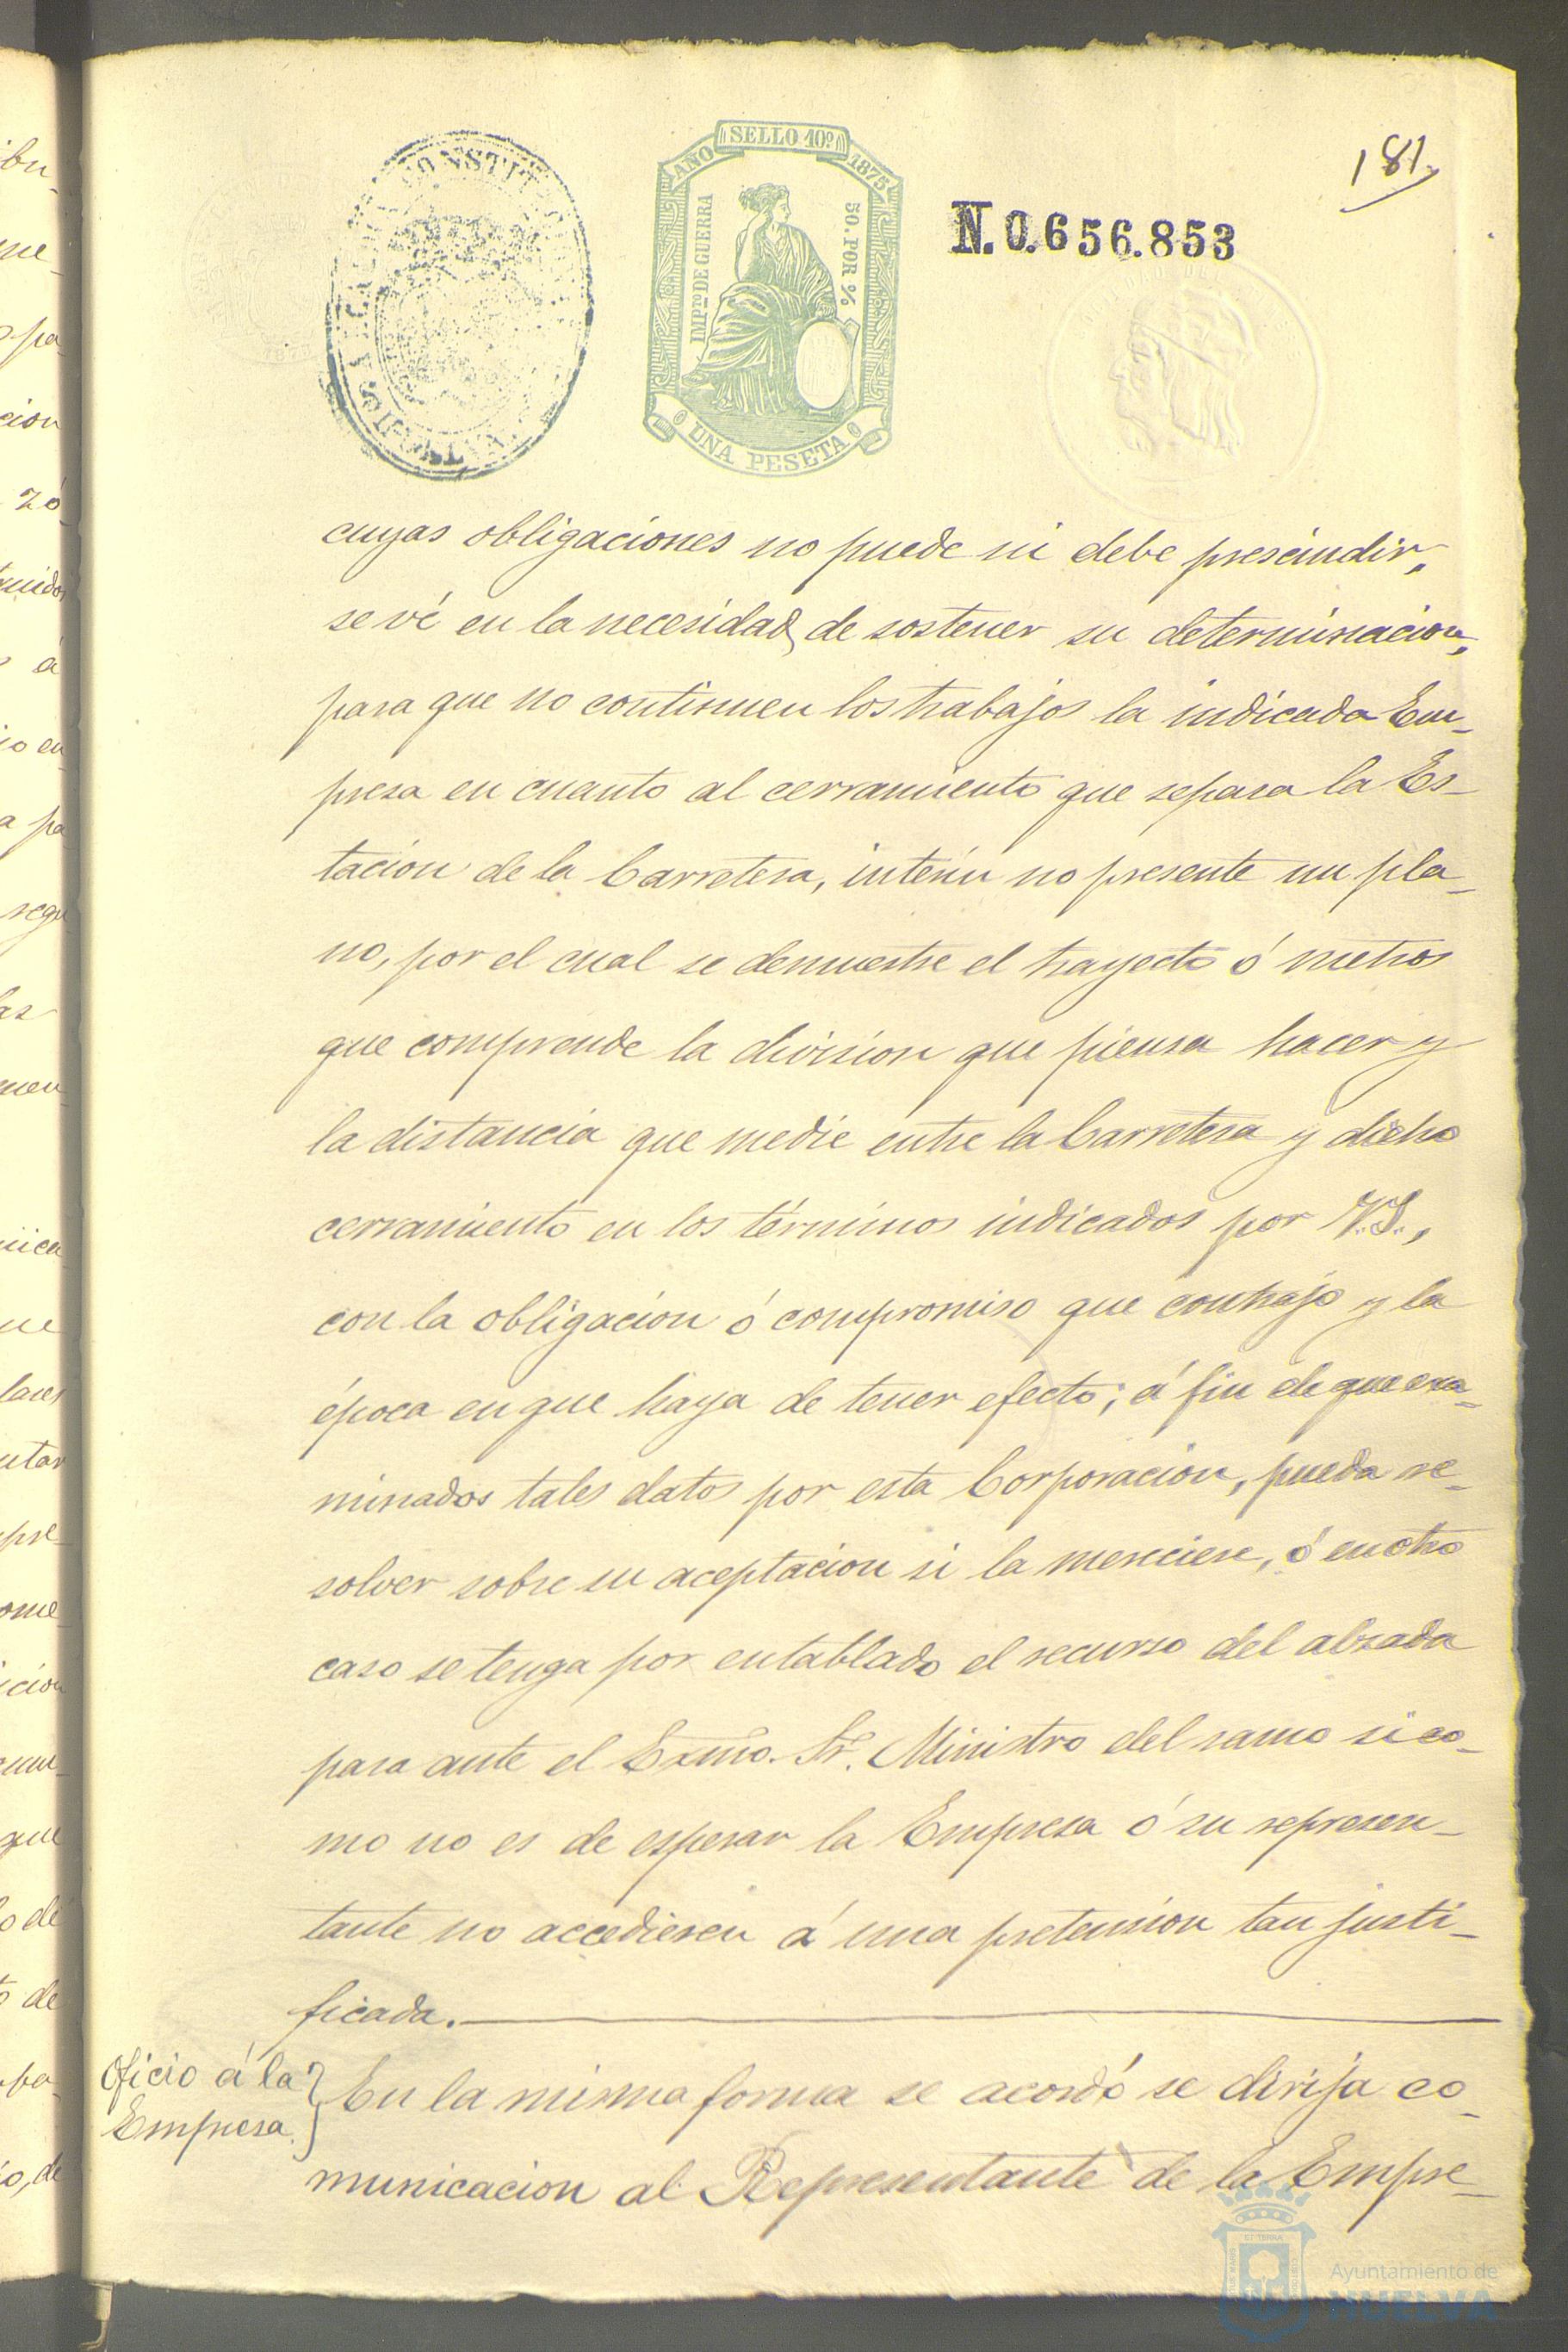 181.
AÑO
SELLO 10º
1875
IMPTO DE GUERRA
50. POR %
UNA PESETA
N. 0.656.853
cuyas obligaciones no puede ni debe prescindir,
se vé en la necesidad, de sostener su determinacion,
para que no continuen los trabajos la indicada Em-
presa en cuanto al cerramiento que separa la Es-
tacion de la Carretera, interin no presente un pla-
no, por el cual se demuestre el trayecto ó metros
que comprende la division que piensa hacer y
la distancia que medie entre la Carretera y dicho
cerramiento en los términos indicados por V.S.,
con la obligacion ó compromiso que contrajo y la
época en que haya de tener efecto; á fin de que exa-
minados tales datos por esta Corporacion, pueda re-
solver sobre su aceptacion si la mereciere, ó en otro
caso se tenga por entablado el recurso del alzada
para ante el Exmo. Sr. Ministro del ramo si co-
mo no es de esperar la Empresa ó su represen-
tante no accedieren á una pretension tan justi-
ficada.
Oficio á la
Empresa.
En la misma forma se acordó se dirija co-
municacion al Representante de la Empre-
Ayuntamiento de
HUELVA